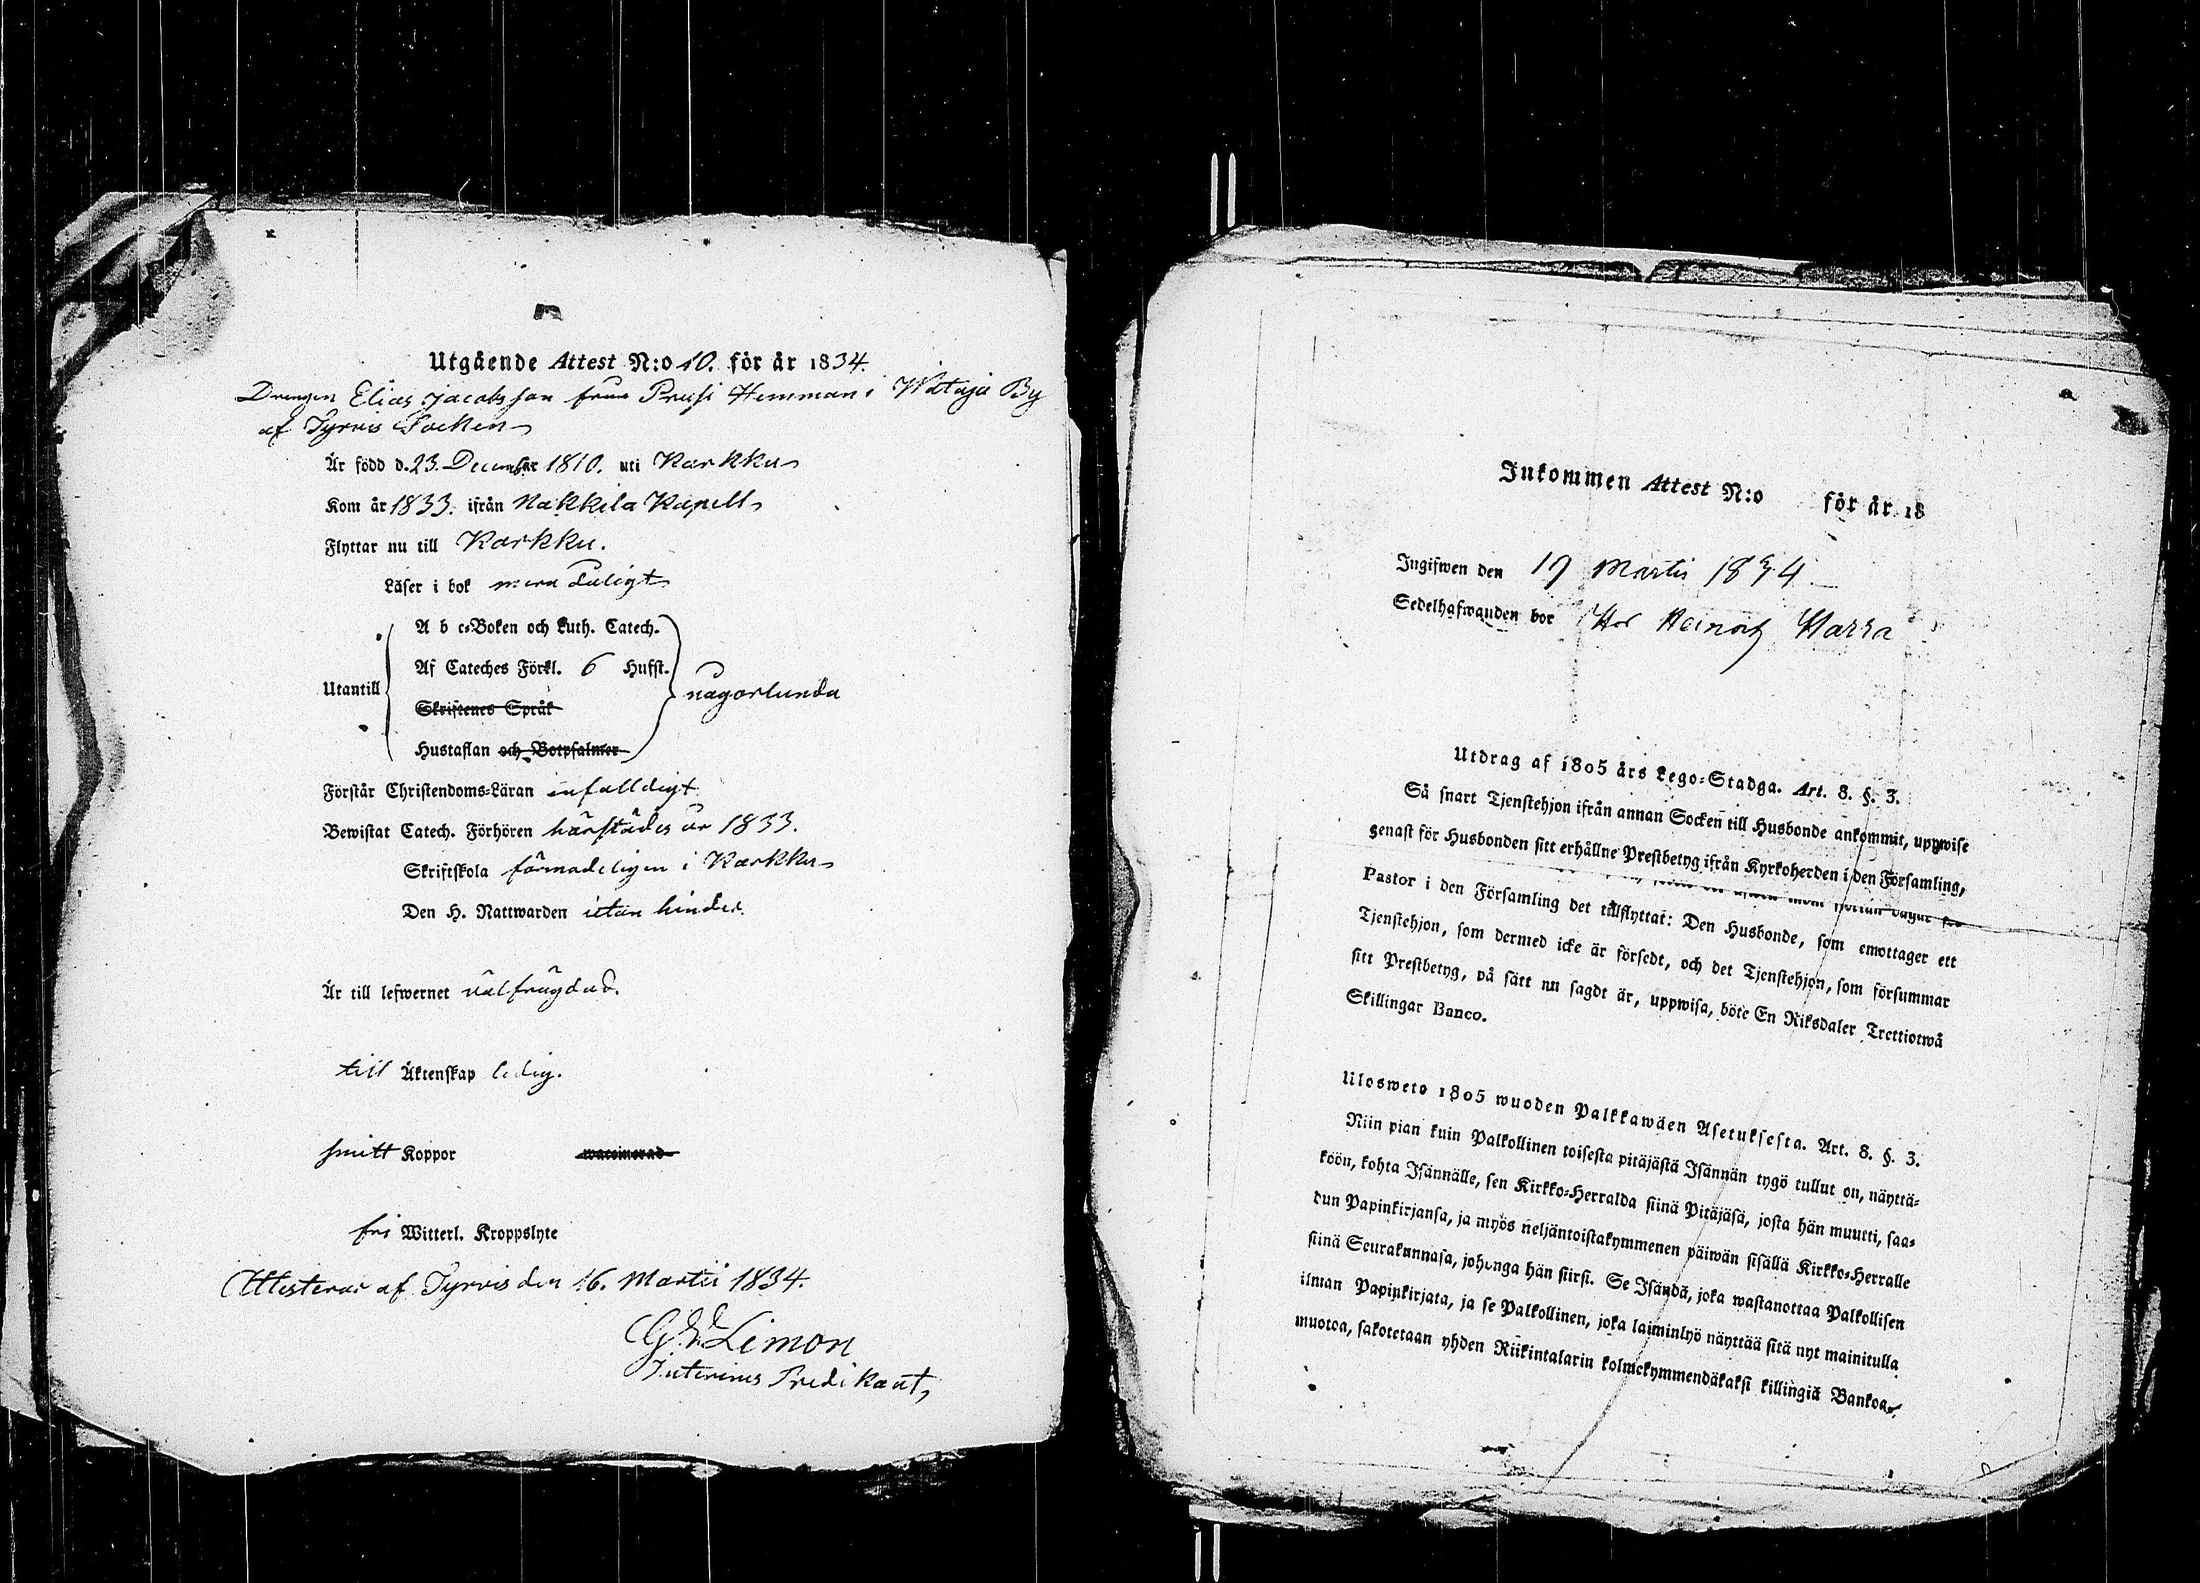 Utgående Attest N:o 10. för år 1834.
Drengen Elias Jacobsson från Prusi Hemman i Wataja By
af Tyrvis Socken
Är född d. 23. December 1810. uti Karkku
Kom år 1833. ifrån Nakkila Kapell
Flyttar nu till Karkku.
Läser i bok mera
A b c-Boken och Luth. Catech.
Af Cateches Förkl. 6 Hufst.
Utantill någorlunda
Skriftenes Språk
Hustaflan och Botpsalmer
Förstår Christendoms-Läran
Bewistat Catech. Förhören härstädes år 1833.
Skriftskola förmodeligen i Karkku
Den H. Nattwarden utan hinder.
Är till lefwernet välfrägdad.
till Äktenskap ledig.
haft Koppor waccinerad
fri Witterl. Kroppslyte
Attesteras af Tyrvis den 16. Martii 1834.
Limon
Interims Predikant,
Inkommen Attest N:o för år 18
Ingifwen den 17 Martii 1834
Sedelhafwanden bor Hos
Utdrag af 1805 års Lego-Stadga. Art. 8. §. 3.
Så snart Tjenstehjon ifrån annan Socken till Husbonde ankommit, uppwise
genast för Husbonden sitt erhållne Prestbetyg ifrån Kyrkoherden i den Församling,
Pastor i den Församling det tillflyttat: Den Husbonde, som emottager ett
Tjenstehjon, som dermed icke är försedt, och det Tjenstehjon, som försummar
sitt Prestbetyg, på sätt nu sagdt är, uppwisa, böte En Riksdaler Trettiotwå
Skillingar Banco.
Ulosweto 1805 wuoden Palkkawäen Asetuksesta. Art. 8. §. 3.
Niin pian kuin Palkollinen toisesta pitäjästä Isännän tygö tullut on, näyttä-
köön, kohta Isännälle, sen Kirkko-Herralda siinä Pitäjäsä, josta hän muutti, saa-
dun Papinkirjansa, ja myös neljäntoistakymmenen päiwän sisällä Kirkko-Herralle
siinä Seurakunnasa, johonga hän siirsi. Se Isändä, joka wastanottaa Palkollisen
ilman Papinkirjata, ja se Palkollinen, joka laiminlyö näyttää sitä nyt mainitulla
muotoa, sakotetaan yhden Riikintalarin kolmekymmendäkaksi killingiä Bankoa.